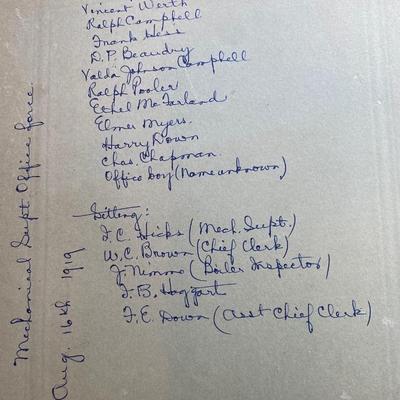 Vincent Werth
Ralph Campbell
Frank Hess
D.P. Beaudry
Valda Johnson Campbell
Ralph Pooler
Ethel McFarland
Elmer Myers.
Harry Down
Chas. Chapman.
Office boy (Name unknown)
Sitting:
F.C. Hicks (Mech. Supt.)
W.C. Brown (Chief Clerk)
J. Nimmo (Boiler Inspector)
F.B. Haggart
F.E. Down (Asst Chief Clerk)
Mechanical Supt Office force
Aug. 16th 1919